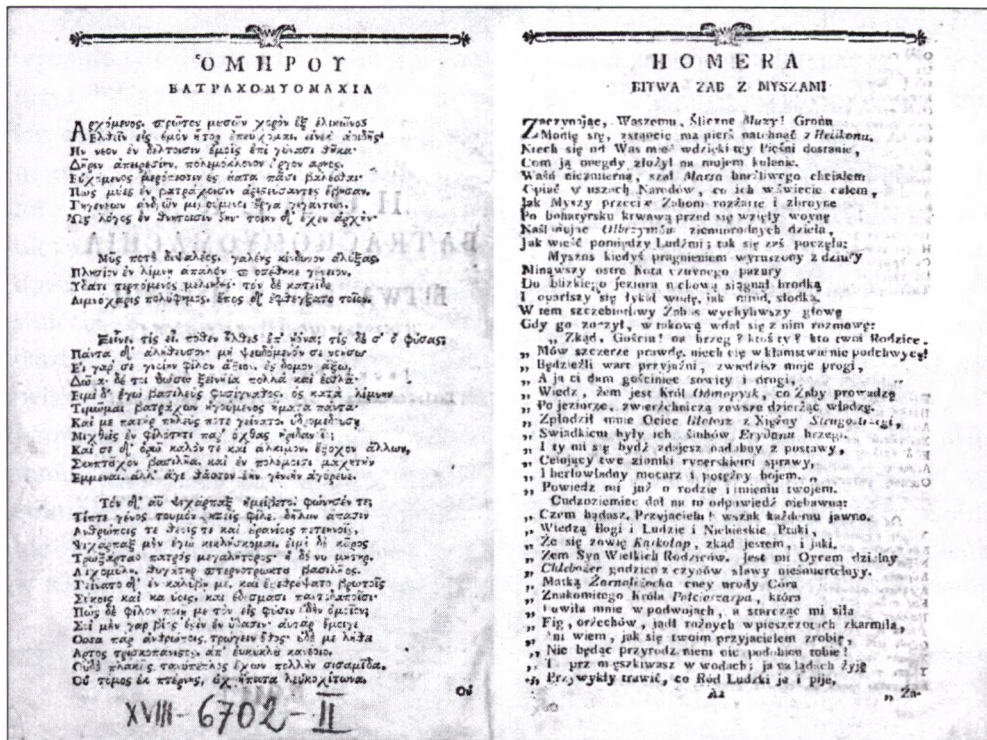 ὉΜΗΡΟΥ
ΒΑΤΡΑΧΟΜΥΟΜΑΧΙΑ
Αρχόμενος πρῶτον μυσῶν χορὸν ἐξ ἑλικῶνος
Ελθεῖν εἰς ἐμὸν ἦτορ ἐπεύχομαι, εἵνεκ' ἀοιδῆς
Ην νέον ἐν δέλτοισιν ἐμοῖς ἐπὶ γούνασι θῆκα
Δῆριν ἀπειρεσίην, πολεμόκλονον ἔργον ἄρηος,
Εὐχόμενος μερόπεσσιν ἐς ὔατα πᾶσι βαλέσθαι
Πῶς μύες ἐν βατράχοισιν ἀριστεύσαντες ἔβησαν,
Γηγενέων ἀνδρῶν μιμούμενοι ἔργα γιγάντων,
Ὡς λόγος ἐν θνητοῖσιν ἔην τοίην δ' ἔχεν ἀρχήν
Μῦς ποτὲ διψαλέος, γαλέης κίνδυνον ἀλύξας,
Πλησίον ἐν λίμνῃ ἁπαλὸν προσέθηκε γένειον,
Υδατι τερπόμενος μελιηδεῖ τὸν δὲ κατεῖδε
Λιμνόχαρις πολύφημος, ἔπος δ' ἐφθέγξατο τοῖον
Ξεῖνε, τίς εἶ; πόθεν ἦλθες ἐπ' ἠόνα; τίς δὲ σ' ὁ φύσας;
Πάντα δ' ἀλήθευσον μὴ ψευδόμενόν σε νοήσω
Εἰ γάρ σε γνοίην φίλον ἄξιον, ἐς δόμον ἄξω,
Δῶρα δέ τοι δώσω ξεινήια πολλὰ καὶ ἐσθλά
Εἰμὶ δ' ἐγὼ βασιλεὺς φυσίγναθος, ὃς κατὰ λίμνην
Τιμῶμαι βατράχων ἡγούμενος ἤματα πάντα
Καί με πατὴρ πηλεὺς ποτε γείνατο, ὑδρομεδούσῃ
Μιχθεὶς ἐν φιλότητι παρ' ὄχθας ἠριδανοῖο
Καὶ σὲ δ' ὁρῶ καλόν τε καὶ ἄλκιμον, ἔξοχον ἄλλων,
Σκηπτοῦχον βασιλῆα, καὶ ἐν πολέμοισι μαχητὴν
Εμμεναι, ἀλλ' ἄγε θᾶσσον ἑὴν γενεὴν ἀγόρευε
Τὸν δ' αὖ ψιχάρπαξ ἠμείβετο, φώνησέν τε,
Τίπτε γένος τοὐμὸν ζητεῖς φίλε, δῆλον ἅπασιν
Ανθρώποις τε θεοῖς τε καὶ οὐρανίοις πετεηνοῖς,
Ψιχάρπαξ μὲν ἐγὼ κικλήσκομαι, εἰμὶ δὲ κοῦρος
Τρωξάρταο πατρὸς μεγαλήτορος ἡ δέ νυ μήτηρ
Λειχομύλη, θυγάτηρ πτερνοτρώκτου βασιλῆος
Γείνατο δ' ἐν καλύβῃ με, καὶ ἐξεθρέψατο βρωτοῖς
Σύκοις καὶ καρύοις, καὶ ἐδέσμασι παντοδαποῖσι
Πῶς δὲ φίλον ποιῇ με τὸν εἰς φύσιν οὐδὲν ὁμοῖον;
Σοὶ μὲν γὰρ βίος ἐστὶν ἐν ὕδασιν αὐτὰρ ἔμοιγε
Οσσα παρ' ἀνθρώποις, τρώγειν ἔθος οὐδέ με λήθει
Αρτος τρισκοπάνιστος ἀπ' εὐκύκλου κανέοιο,
Οὐδὲ πλακοῦς τανύπεπλος ἔχων πολλὴν σισαμίδα,
Οὐ τόμος ἐκ πτέρνης, οὐχ ἥπατα λευκοχίτωνα,
Οὐ
XVIII-6702-II
HOMERA
BITWA ŻAB Z MYSZAMI
Zaczynając, Waszemu, Śliczne Muzy! Gronu
Modlę się, zstąpcie na pierś natchnąć z Helikonu,
Niech się od Was moc wdzięki tey Pieśni dostanie,
Com ją onegdy złożył na mojem kolanie.
Waśń niezmierną, szał Marsa burzliwego chciałem
Opiać w uszach Narodów, co ich w świecie całem,
Jak Myszy przeciw Żabom rozżarte i zbroyne
Po bohatyrsku krwawą przed się wzięły woynę
Naśladując Olbrzymów ziemiorodnych dzieła,
Jak wieść pomiędzy Ludźmi; tak się zaś poczęła:
Myszos kiedyś pragnieniem wyruszony z dziury
Minąwszy ostre Kota czuynego pazury
Do blizkiego jeziora siągnął brodką
I oparłszy się łykał wodę, jak miód, słodką.
W tem szczebiotliwy Żabas wychyliwszy głowę
Gdy go zoczył, w takową wdał się z nim rozmowę:
„ Zkąd, Gościu! na brzeg? ktoś ty? kto twoi Rodzice.
„ Mów szczerze prawdę, niech cię w kłamstwie nie podchwycę!
„ Będzieszli wart przyjaźni, zwiedzisz moje progi,
„ A ja ci dam gościniec sowity i drogi,
„ Wiedz, żem jest Król Odmopysk, co Żaby prowadzę
„ Po jeziorze, zwierzchniczą zawsze dzierżąc władzę.
„ Zpłodził mnie Ociec Błotosz z Xiężny
„ Świadkiem były ich ślubów Erydanu brzegi.
„ I ty mi się bydź zdajesz nadobny z postawy,
„ Celujący twe ziomki rycerskiemi sprawy,
„ I berłowładny mocarz i potężny bojem,
„ Powiedz mi już o rodzie i imieniu twojem.
Cudzoziemiec dał na to odpowiedź niebawną:
„ Czem badasz, Przyjacielu! wszak każdemu jawno.
„ Wiedzą Bogi i Ludzie i Niebieskie Ptaki,
„ Że się zowię Kruchołap, zkąd jestem, i jaki,
„ Żem Syn Wielkich Rodziców, jest mi Oycem dzielny
„ Chlebożer godzien z czynów sławy nieśmiertelney.
„ Matką cney urody Córa
„ Znakomitego Króla która
„ Powiła mnie w podwojach, a starcząc mi siła
„ Fig, orzechów, jadł rożnych w pieszczotach zkarmiła,
„ Ani wiem, jak się twoim przyjacielem zrobię,
„ Nie będąc przyrodzeniem nic podobien tobie!
„ Ty mieszkiwasz w wodach; ja na lądach żyję
„ Przywykły trawić, co Ród Ludzki je i pije,
A2
„ Za-